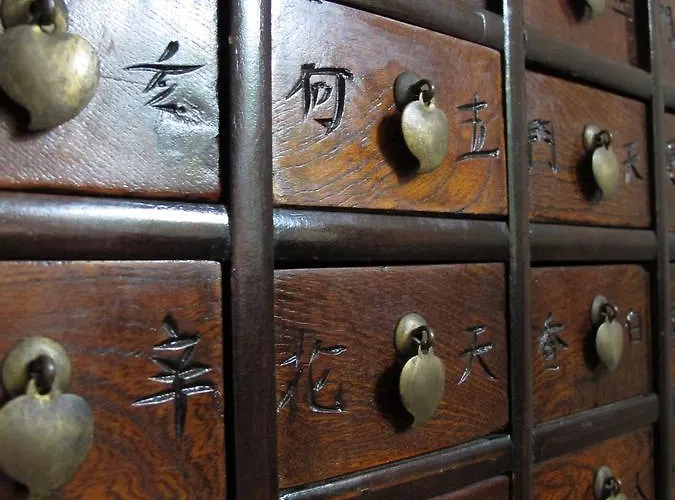 玄 何 五 門 天
辛 花 天 蚕 白